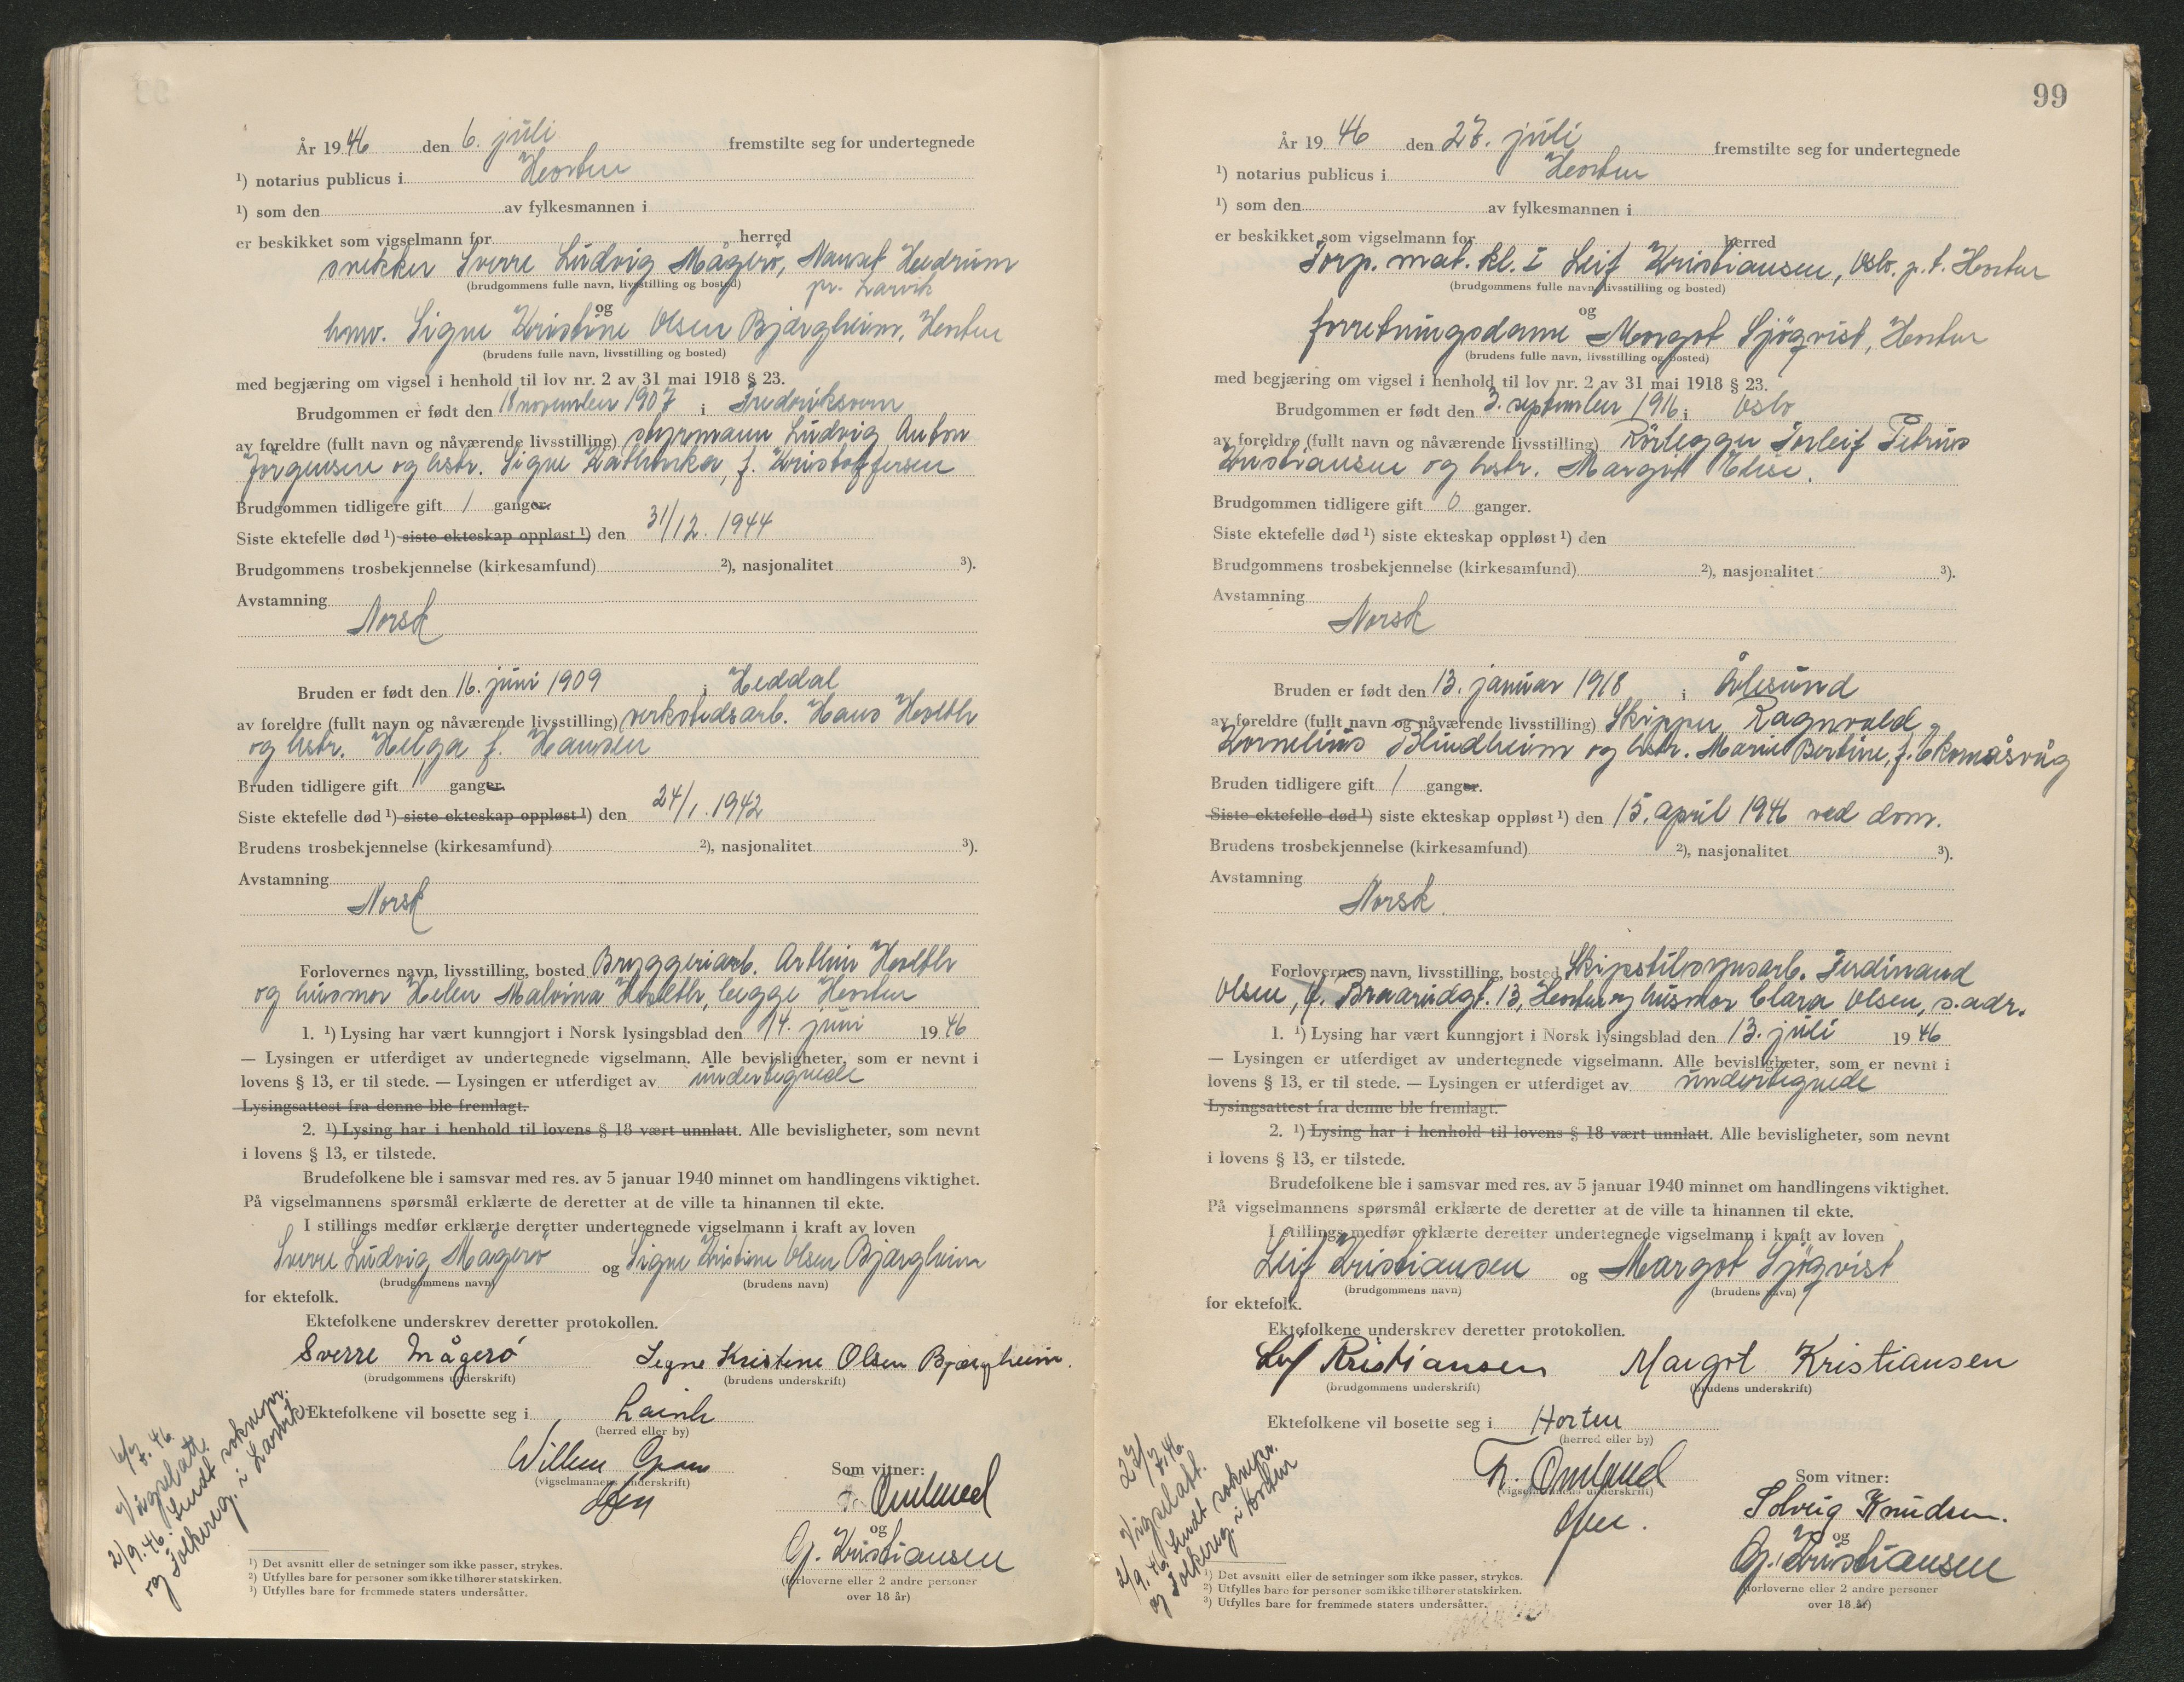 År 1946 den 6. juli fremstilte seg for undertegnede
¹) notarius publicus i Horten
¹) som den av fylkesmannen i
er beskikket som vigselmann for herred
snekker Sverre Ludvig Mågerö, Nanset Hedrum
(brudgommens fulle navn, livsstilling og bosted) pr. Larvik
og
hmv. Signe Kristine Olsen Bjærgheim, Horten
(brudens fulle navn, livsstilling og bosted)
med begjæring om vigsel i henhold til lov nr. 2 av 31 mai 1918 § 23.
Brudgommen er født den 18 november 1907 i Fredriksvern
av foreldre (fullt navn og nåværende livsstilling) styrmann Ludvig Anton
Jörgensen og hstr. Signe Kathinka, f. Kristoffersen
Brudgommen tidligere gift 1 ganger.
Siste ektefelle død ¹) siste ekteskap oppløst ¹) den 31/12. 1944
Brudgommens trosbekjennelse (kirkesamfund) ²), nasjonalitet ³).
Avstamning
Norsk
Bruden er født den 16. juni 1909 i Heddal
av foreldre (fullt navn og nåværende livsstilling) verkstedsarb. Hans
og hstr. Helga f. Hansen
Bruden tidligere gift 1 ganger.
Siste ektefelle død ¹) siste ekteskap oppløst ¹) den 24/1. 1942
Brudens trosbekjennelse (kirkesamfund) ²), nasjonalitet ³).
Avstamning
Norsk
Forlovernes navn, livsstilling, bosted Bryggeriarb. Arthur
og husmor Helen Malvina begge Horten
1. ¹) Lysing har vært kunngjort i Norsk lysingsblad den 14. juni 1946
— Lysingen er utferdiget av undertegnede vigselmann. Alle bevisligheter, som er nevnt i
lovens § 13, er til stede. — Lysingen er utferdiget av undertegnede
Lysingsattest fra denne ble fremlagt.
2. ¹) Lysing har i henhold til lovens § 18 vært unnlatt. Alle bevisligheter, som nevnt
i lovens § 13, er tilstede.
Brudefolkene ble i samsvar med res. av 5 januar 1940 minnet om handlingens viktighet.
På vigselmannens spørsmål erklærte de deretter at de ville ta hinannen til ekte.
I stillings medfør erklærte deretter undertegnede vigselmann i kraft av loven
Sverre Ludvig Mågerö og Signe Kristine Olsen Bjærgheim
(brudgommens navn) (brudens navn)
for ektefolk.
Ektefolkene underskrev deretter protokollen.
Sverre Mågerö Signe Kristine Olsen Bjærgheim.
(brudgommens underskrift) (brudens underskrift)
Ektefolkene vil bosette seg i Larvik
(herred eller by)
Willem
(vigselmannens underskrift) Som vitner:
Omlund
og
G. Kristiansen
(forloverne eller 2 andre personer
over 18 år)
6/7. 46.
Vigselatt.
2/9. 46. Sendt soknepr.
og Folkereg. i Larvik.
¹) Det avsnitt eller de setninger som ikke passer, strykes.
²) Utfylles bare for personer som ikke tilhører statskirken.
³) Utfylles bare for fremmede staters undersåtter.
99
År 1946 den 27. juli fremstilte seg for undertegnede
¹) notarius publicus i Horten
¹) som den av fylkesmannen i
er beskikket som vigselmann for herred
Torp. mat. kl. I Leif Kristiansen, Oslo. p.t. Horten
(brudgommens fulle navn, livsstilling og bosted)
og
forretningsdame Margot Sjöqvist, Horten
(brudens fulle navn, livsstilling og bosted)
med begjæring om vigsel i henhold til lov nr. 2 av 31 mai 1918 § 23.
Brudgommen er født den 3. september 1916 i Oslo
av foreldre (fullt navn og nåværende livsstilling) Rörlegger Torleif Petrus
Kristiansen og hstr. Margot Elise.
Brudgommen tidligere gift 0 ganger.
Siste ektefelle død ¹) siste ekteskap oppløst ¹) den
Brudgommens trosbekjennelse (kirkesamfund) ²), nasjonalitet ³).
Avstamning
Norsk
Bruden er født den 13. januar 1918 i Ålesund
av foreldre (fullt navn og nåværende livsstilling) Skipper Ragnvald
Kornelius Blindheim og hstr. Marie Bertine, f.
Bruden tidligere gift 1 ganger.
Siste ektefelle død ¹) siste ekteskap oppløst ¹) den 15. april 1946 ved dom.
Brudens trosbekjennelse (kirkesamfund) ²), nasjonalitet ³).
Avstamning
Norsk.
Forlovernes navn, livsstilling, bosted Skipstilsynsarb. Ferdinand
Olsen, Braarudgt. 13, Horten og husmor Clara Olsen, s.adr.
1. ¹) Lysing har vært kunngjort i Norsk lysingsblad den 13. juli 1946
— Lysingen er utferdiget av undertegnede vigselmann. Alle bevisligheter, som er nevnt i
lovens § 13, er til stede. — Lysingen er utferdiget av undertegnede
Lysingsattest fra denne ble fremlagt.
2. ¹) Lysing har i henhold til lovens § 18 vært unnlatt. Alle bevisligheter, som nevnt
i lovens § 13, er tilstede.
Brudefolkene ble i samsvar med res. av 5 januar 1940 minnet om handlingens viktighet.
På vigselmannens spørsmål erklærte de deretter at de ville ta hinannen til ekte.
I stillings medfør erklærte deretter undertegnede vigselmann i kraft av loven
Leif Kristiansen og Margot Sjöqvist
(brudgommens navn) (brudens navn)
for ektefolk.
Ektefolkene underskrev deretter protokollen.
Leif Kristiansen Margot Kristiansen
(brudgommens underskrift) (brudens underskrift)
Ektefolkene vil bosette seg i Horten
(herred eller by)
Th. Omlund
(vigselmannens underskrift) Som vitner:
Solveig Knudsen.
og
G. Kristiansen
(forloverne eller 2 andre personer
over 18 år)
27/7. 46.
Vigselatt.
2/9. 46. Sendt soknepr.
og Folkereg. i Horten
¹) Det avsnitt eller de setninger som ikke passer, strykes.
²) Utfylles bare for personer som ikke tilhører statskirken.
³) Utfylles bare for fremmede staters undersåtter.